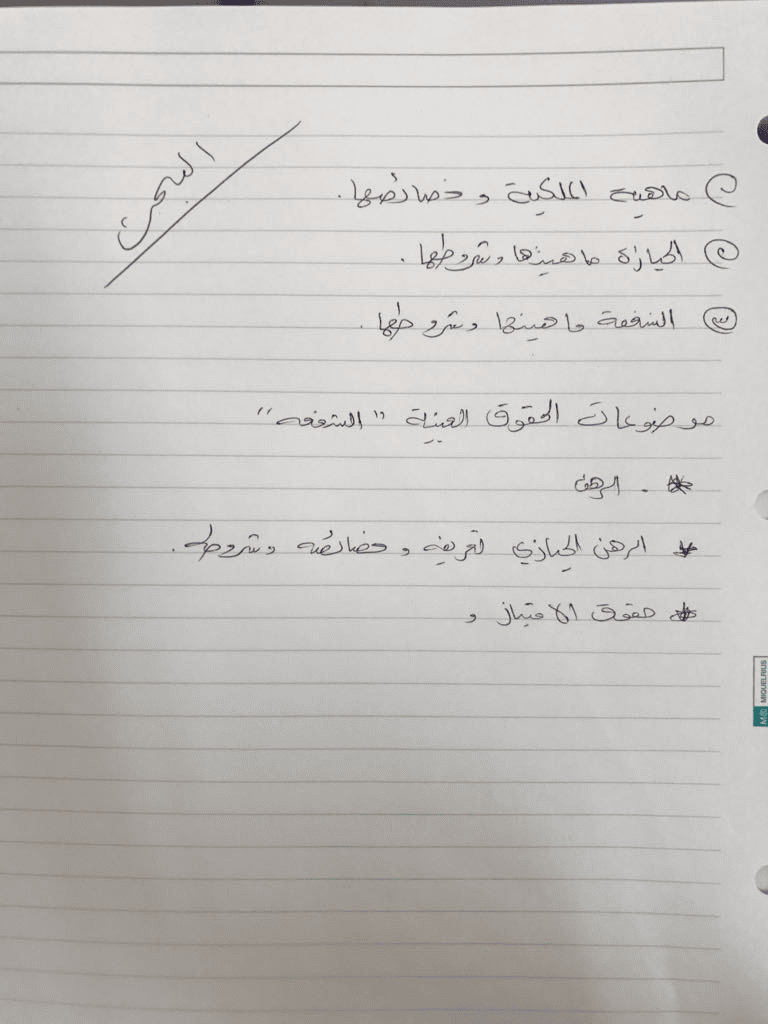 البحث
١ ماهية الملكية و خصائصها.
٢ الحيازة ماهيتها وشروطها.
٣ الشفعة ماهيتها وشروطها.
موضوعات الحقوق العينية "الشفعه"
* . الرهن
* الرهن الحيازي تعريفه و خصائصه وشروطه.
* حقوق الامتياز و
MIQUELRIUS